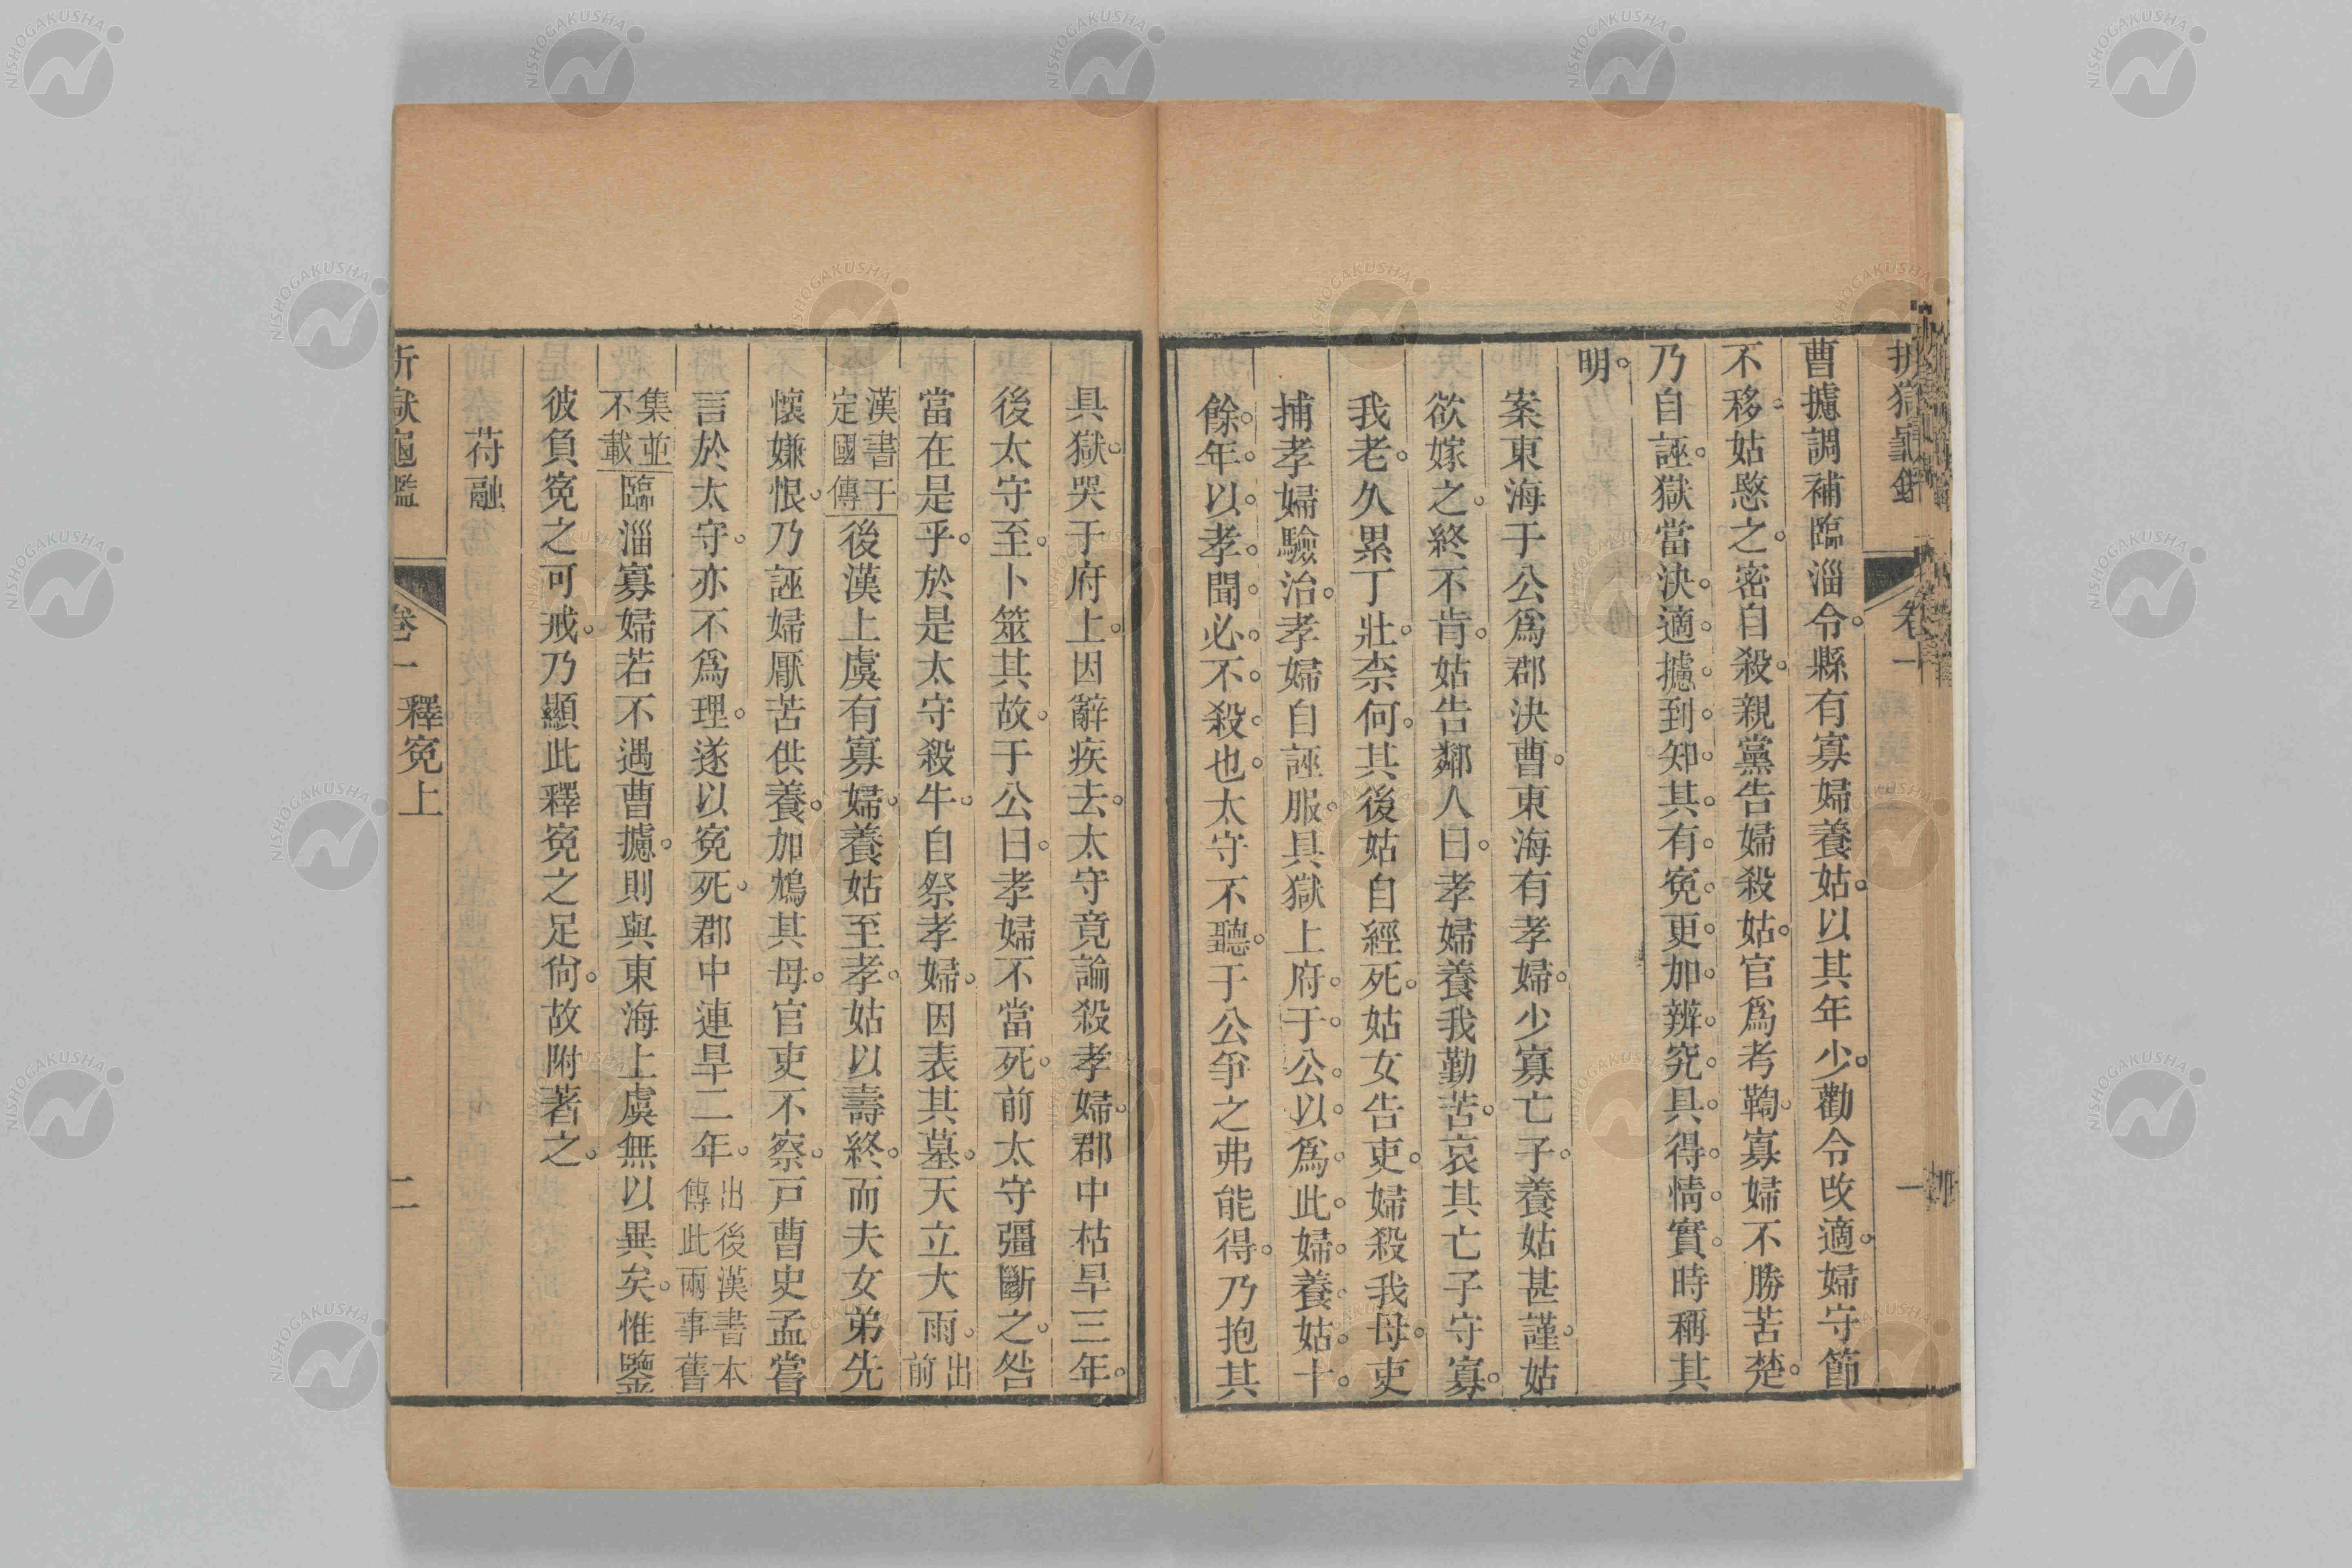 折獄龜鑑
卷一
一
曹攄調補臨淄令。縣有寡婦養姑。以其年少。勸令改適。婦守節
不移。姑愍之。密自殺。親黨告婦殺姑。官爲考鞫。寡婦不勝苦楚。
乃自誣。獄當決。適。攄。到。知。其。有。寃。更。加。辨。究。具。得。情。實。時稱其
明。
案東海于公爲郡決曹。東海有孝婦。少寡亡子。養姑甚謹。姑
欲嫁之。終不肯。姑告鄰人曰。孝婦養我勤苦。哀其亡子守寡。
我老。久累丁壯。柰何。其後姑自經死。姑女告吏。婦殺我母。吏
捕孝婦驗治。孝婦自誣服。具獄上府。于。公。以。爲。此。婦。養。姑。十。
餘。年。以。孝。聞。必。不。殺。也。太守不聽。于公爭之弗能得。乃抱其
具獄。哭于府上。因辭疾去。太守竟論殺孝婦。郡中枯旱三年。
後太守至。卜筮其故。于公曰。孝婦不當死。前太守彊斷之。咎
當在是乎。於是太守殺牛。自祭孝婦。因表其墓。天立大雨。出前
漢書于定國傳
後漢上虞有寡婦。養姑至孝。姑以壽終。而夫女弟先
懷嫌恨。乃誣婦厭苦供養。加鴆其母。官吏不察。戸曹史孟嘗
言於太守。亦不爲理。遂以寃死。郡中連旱二年。出後漢書本傳此兩事舊
集並不載
臨淄寡婦若不遇曹攄。則與東海上虞無以異矣。惟鑒
彼負寃之可戒。乃顯此釋寃之足尙。故附著之。
苻融
折獄龜鑑
卷一
釋寃上
二
NISHOGAKUSHA